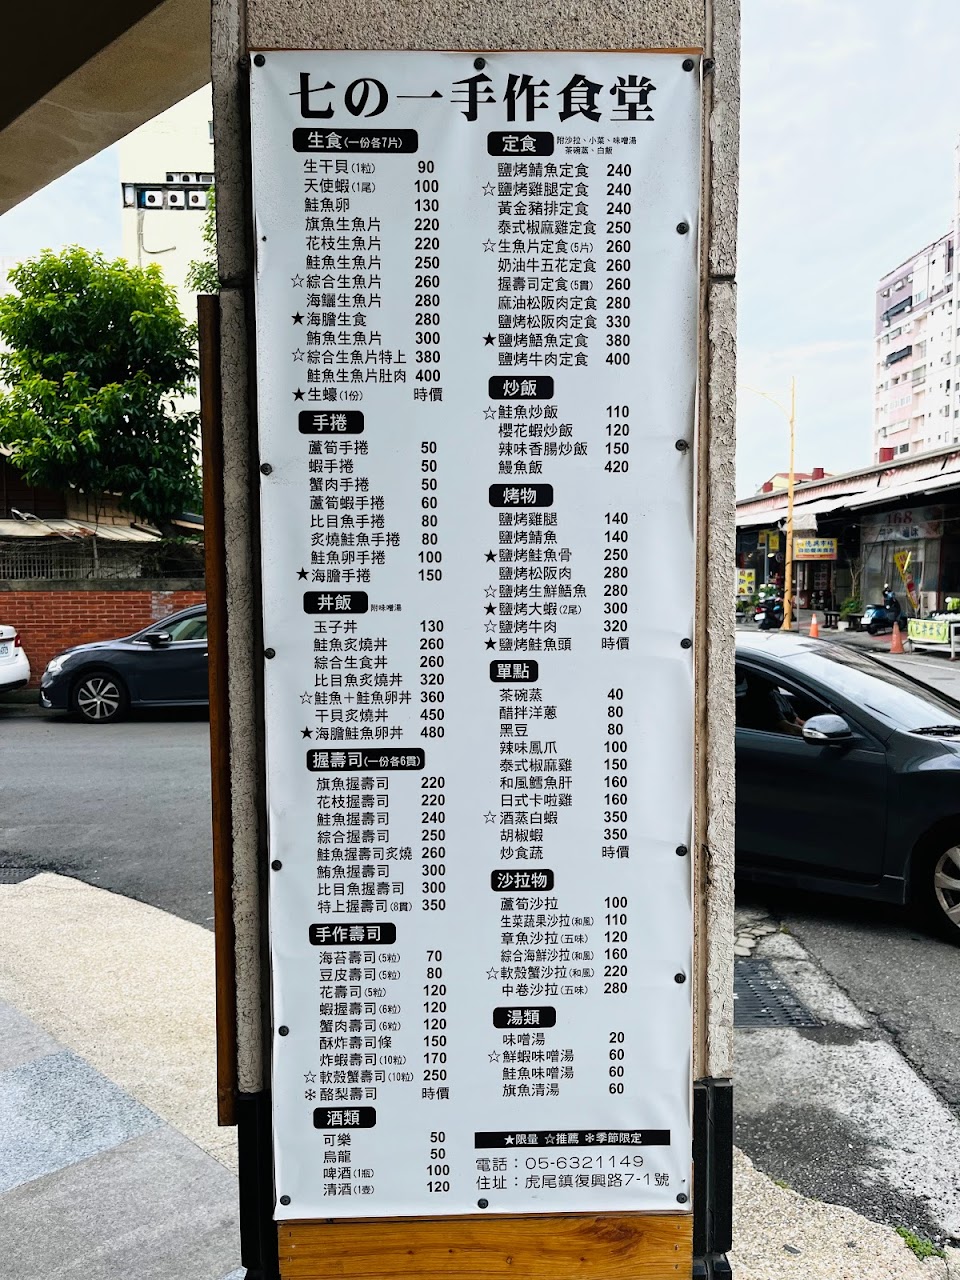 七の一手作食堂
生食(一份各7片)
生干貝(1粒) 90
天使蝦(1尾) 100
鮭魚卵 130
旗魚生魚片 220
花枝生魚片 220
鮭魚生魚片 250
☆綜合生魚片 260
海鱺生魚片 280
★海膽生食 280
鮪魚生魚片 300
☆綜合生魚片特上 380
鮭魚生魚片肚肉 400
★生蠔(1份) 時價
手捲
蘆筍手捲 50
蝦手捲 50
蟹肉手捲 50
蘆筍蝦手捲 60
比目魚手捲 80
炙燒鮭魚手捲 80
鮭魚卵手捲 100
★海膽手捲 150
丼飯 附味噌湯
玉子丼 130
鮭魚炙燒丼 260
綜合生食丼 260
比目魚炙燒丼 320
☆鮭魚+鮭魚卵丼 360
干貝炙燒丼 450
★海膽鮭魚卵丼 480
握壽司(一份各6貫)
旗魚握壽司 220
花枝握壽司 220
鮭魚握壽司 240
綜合握壽司 250
鮭魚握壽司炙燒 260
鮪魚握壽司 300
比目魚握壽司 300
特上握壽司(8貫) 350
手作壽司
海苔壽司(5粒) 70
豆皮壽司(5粒) 80
花壽司(5粒) 120
蝦握壽司(6粒) 120
蟹肉壽司(6粒) 120
酥炸壽司條 150
炸蝦壽司(10粒) 170
☆軟殼蟹壽司(10粒) 250
✻酪梨壽司 時價
酒類
可樂 50
烏龍 50
啤酒(1瓶) 100
清酒(1壺) 120
定食 附沙拉、小菜、味噌湯
茶碗蒸、白飯
鹽烤鯖魚定食 240
☆鹽烤雞腿定食 240
黃金豬排定食 240
泰式椒麻雞定食 250
☆生魚片定食(5片) 260
奶油牛五花定食 260
握壽司定食(5貫) 260
麻油松阪肉定食 280
鹽烤松阪肉定食 330
★鹽烤鯃魚定食 380
鹽烤牛肉定食 400
炒飯
☆鮭魚炒飯 110
櫻花蝦炒飯 120
辣味香腸炒飯 150
鰻魚飯 420
烤物
鹽烤雞腿 140
鹽烤鯖魚 140
★鹽烤鮭魚骨 250
鹽烤松阪肉 280
☆鹽烤生鮮鯃魚 280
★鹽烤大蝦(2尾) 300
☆鹽烤牛肉 320
★鹽烤鮭魚頭 時價
單點
茶碗蒸 40
醋拌洋蔥 80
黑豆 80
辣味鳳爪 100
泰式椒麻雞 150
和風鱈魚肝 160
日式卡啦雞 160
☆酒蒸白蝦 350
胡椒蝦 350
炒食蔬 時價
沙拉物
蘆筍沙拉 100
生菜蔬果沙拉(和風) 110
章魚沙拉(五味) 120
綜合海鮮沙拉(和風) 160
☆軟殼蟹沙拉(和風) 220
中卷沙拉(五味) 280
湯類
味噌湯 20
☆鮮蝦味噌湯 60
鮭魚味噌湯 60
旗魚清湯 60
★限量 ☆推薦 ✻季節限定
電話：05-6321149
住址：虎尾鎮復興路7-1號
168